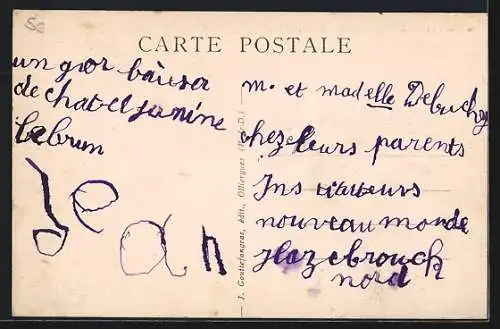 50
CARTE POSTALE
un gror baiser
de chat et janine
Lebrun
Jean
J. Goutsefangeas, édit., Olliergues (P.-de-D.)
m. et madelle Debuchy
chez leurs parents
Ins tituteurs
nouveau monde
Hazebrouck
nord